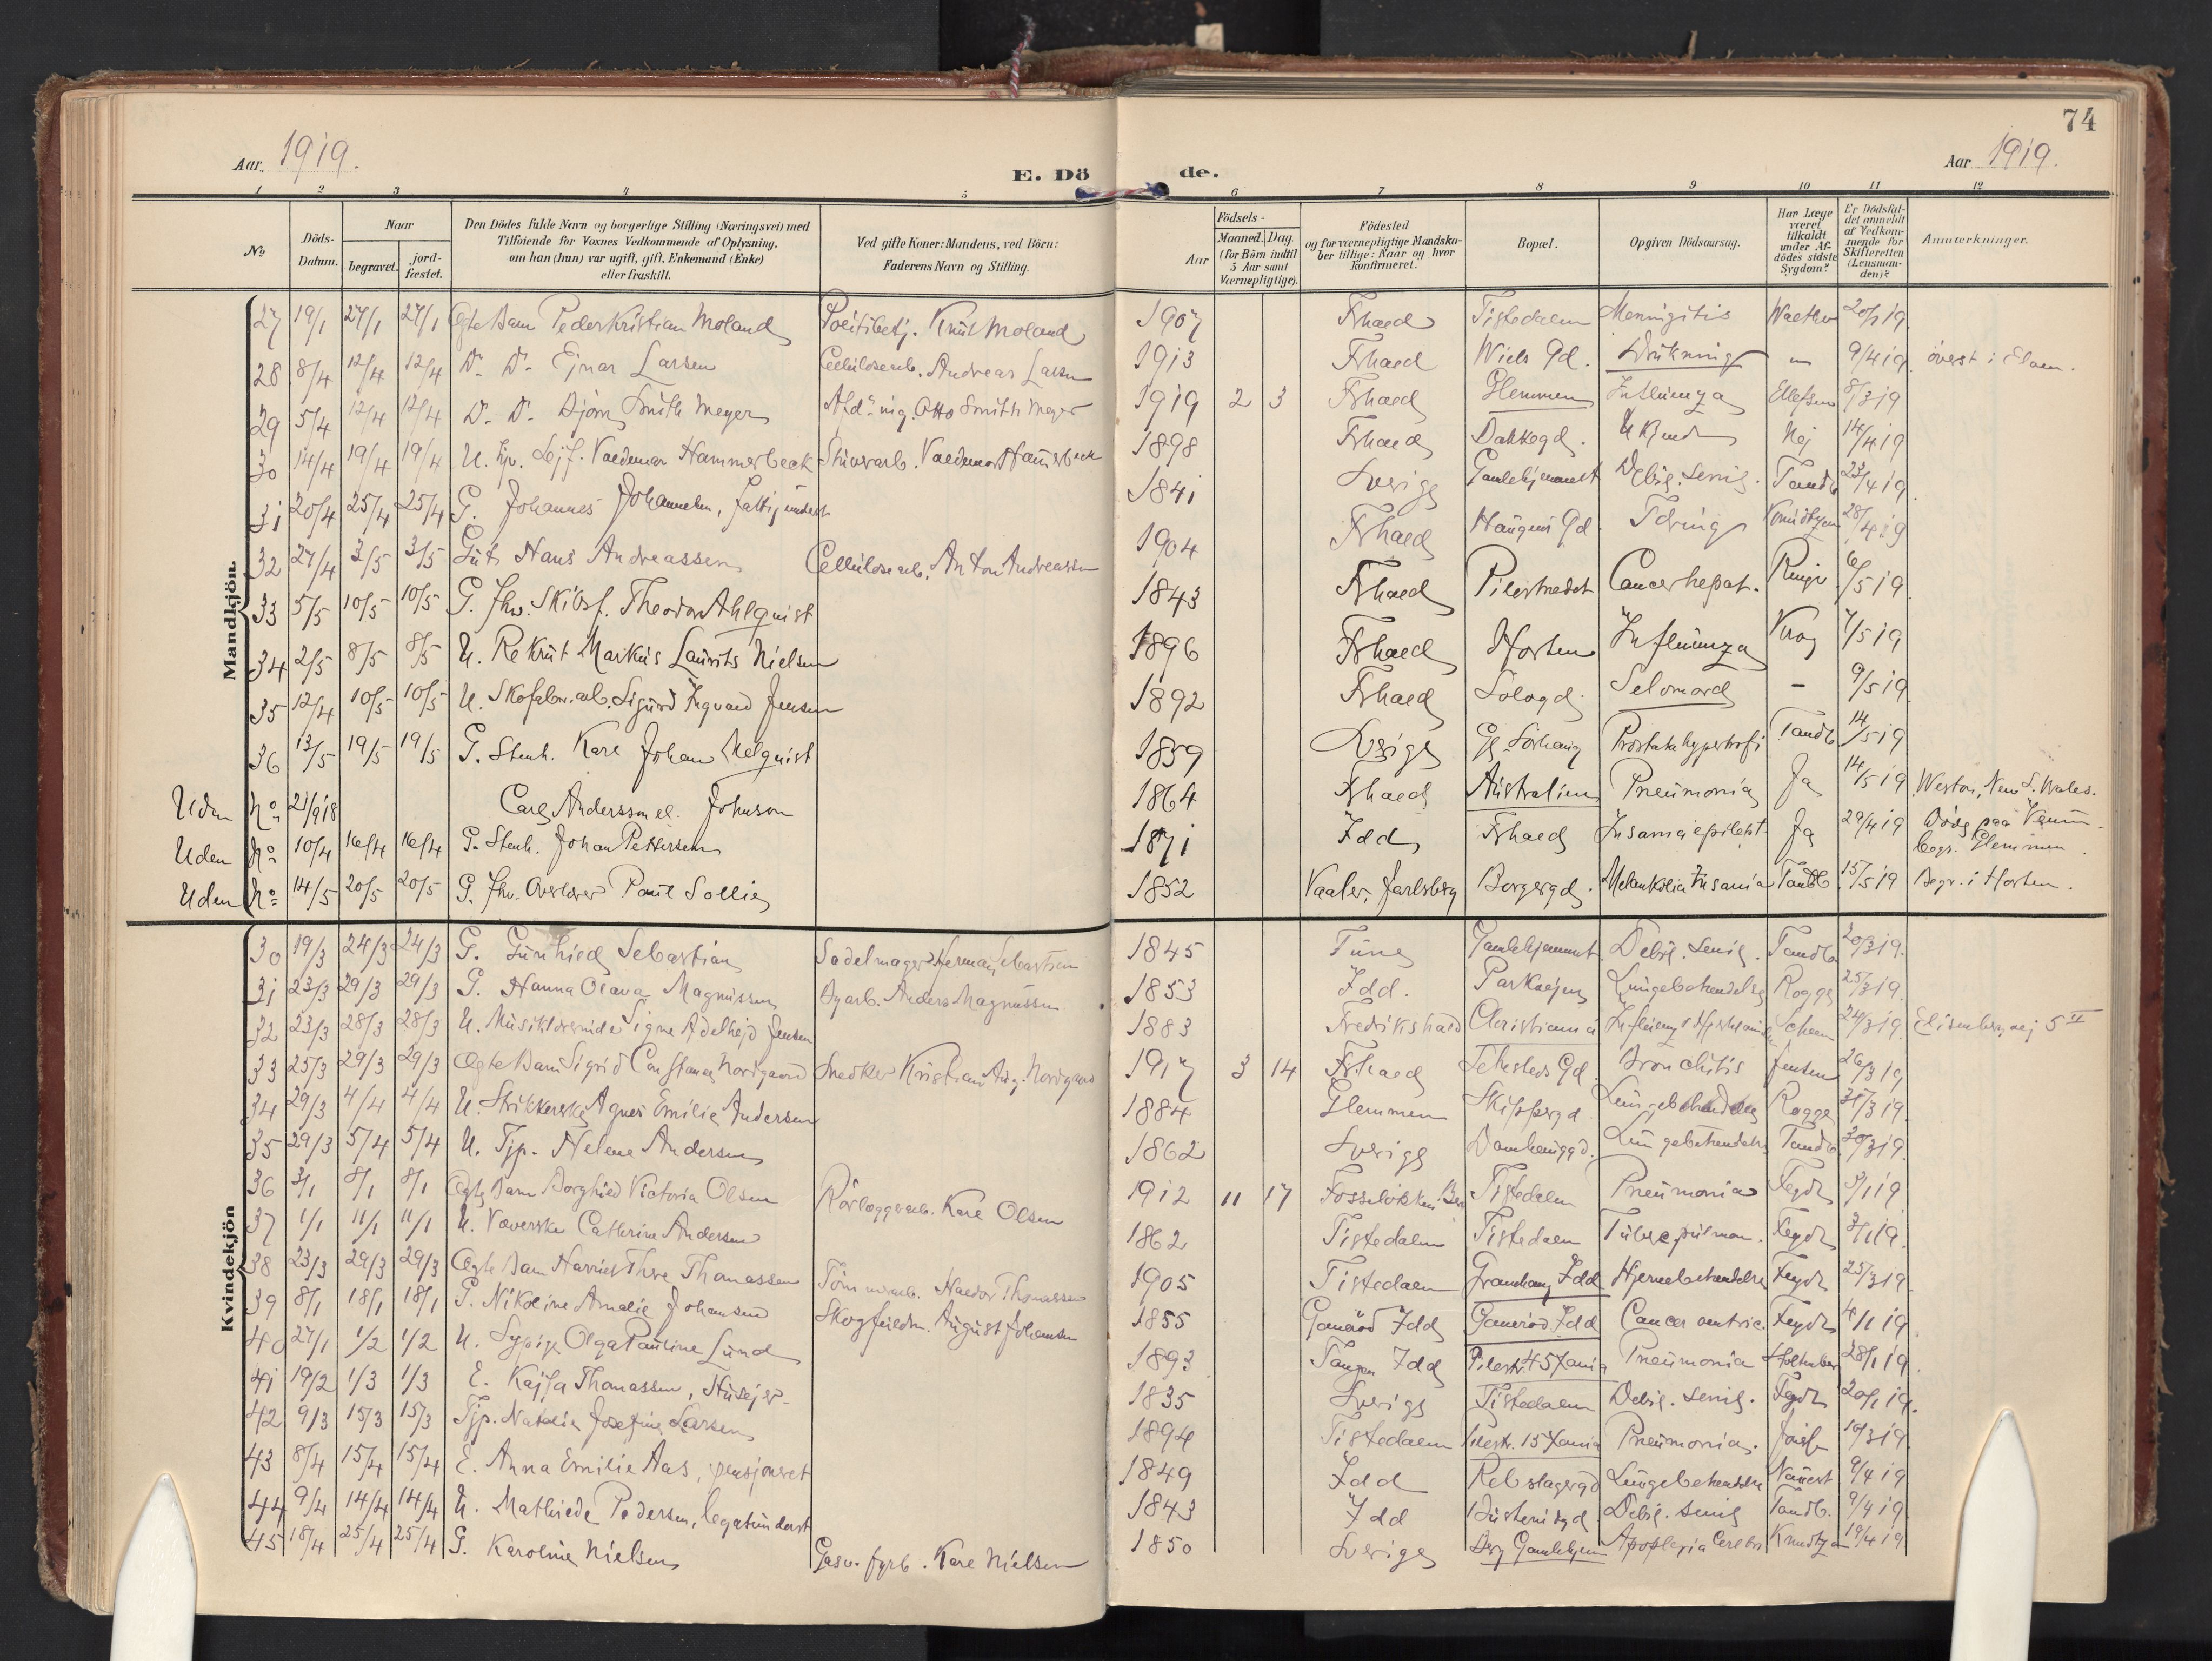 74
Aar. 1919. E. Dö de. Aar 1919.
1 2 3 4 5 6 7 8 9 10 11 12
No. Döds-Datum. Naar begravet. jord-fæstet. Den Dödes fulde Navn og borgerlige Stilling (Næringsvei) med Tilföiende for Voxnes Vedkommende af Oplysning, om han (hun) var ugift, gift, Enkemand (Enke) eller fraskilt. Ved gifte Koner: Mandens, ved Börn: Faderens Navn og Stilling. Födsels- Aar Maaned. Dag. (for Börn indtil 5 Aar samt Værnepligtige). Födested og for værnepligtige Mandskaber tillige: Naar og hvor konfirmeret. Bopæl. Opgiven Dödsaarsag. Har Læge været tilkaldt under Afdödes sidste Sygdom? Er Dödsfaldet anmeldt af Vedkommende for Skifteretten (Lensmanden)? Anmærkninger.
Mandkjön.
27 19/1 27/1 27/1 Ægte Barn Peder Kristian Moland Politibetj. Knut Moland 1907 Frhald Tistedalen Mennigitis 20/1 19
28 8/4 12/4 12/4 Do Do Ejnar Larsen Cellulosearb. Andreas Larsen 1913 Frhald Wiels Gd. Drukning — 9/4 19 överst i Elven.
29 5/4 12/4 12/4 Do Do Björn Smith Meyer Afd. ing. Otto Smith Meyer 1919 2 3 Frhald Glemmen Influenza Ellefsen 8/3 19
30 14/4 19/4 19/4 U. Lejf Valdemar Hammerbeck Skinverarb. Valdemar Hammerbeck 1898 Frhald Bakkegd. Ukjendt Nej 14/4 19
31 20/4 25/4 25/4 G. Johannes Johannesen, fattigunderst. 1841 Sverige Gamlehjemmet Debil. senil. Tandb. 23/4 19
32 27/4 3/5 3/5 Gut Hans Andreassen Cellulosearb. Anton Andreassen 1904 Frhald Haugens Gd. 28/4 19
33 5/5 10/5 10/5 G. fhv. Skibsf. Theodor Ahlquist 1843 Frhald Pilestrædet Cancer hepat. 6/5 19
34 2/5 8/5 8/5 U. Rekrut Markus Laurits Nielsen 1896 Frhald Horten Influenza Krog 7/5 19
35 12/4 10/5 10/5 U. Skofabr. arb. Sigurd Ingvald Jensen 1892 Frhald Selvmord — 9/5 19
36 13/5 19/5 19/5 G. Stenh. Karl Johan Melquist 1859 Sverige Prostatahypertrofi Tandb 14/5 19
Uden No 21/9 18 Carl Andersson el. Johnson 1864 Frhald Australien Pneumonia Ja 14/5 19 Weston, New S. Wales.
Uden No 10/4 16/4 16/4 G. Stenh. Johan Pettersen 1871 Idd Frhald Insania epilept. Ja 29/4 19 begr. Glemmen.
Uden No 14/5 20/5 20/5 G. fhv. Overlærer Paul Sollie 1852 Vaaler, Jarlsberg Borgergd. Melankolia Insania Tandb 15/5 19 Begr. i Horten.
Kvindekjön
30 19/3 24/3 24/3 G. Gunhild Sebastian Sadelmager Herman Sebastian 1845 Tune Gamlehjemmet Debil. senil. Tandb. 20/3 19.
31 23/3 29/3 29/3 G. Hanna Olava Magnussen Byarb. Anders Magnussen 1853 Idd. Lungebetændelse Rogge 25/3 19.
32 23/3 28/3 28/3 U. Musiklærerinde Signe Adelheid Jensen 1883 Fredrikshald Christiania 24/3 19. Eilersbergvej 5 II
33 25/3 29/3 29/3 Ægte Barn Sigrid Constance Nordgaard Snedker Kristian Aug. Nordgaard 1917 3 14 Frhald Gd. Bronchitis Jensen 26/3 19
34 29/3 4/4 4/4 U. Strikkerske Agnes Emilie Andersen 1884 Glemmen Skippergd. Lungebetændelse Rogge 31/3 19.
35 29/3 5/4 5/4 U. Tjp. Helene Andersen 1862 Sverige Damhauggd. Lungebetændelse Tandb. 30/3 19.
36 3/1 8/1 8/1 Ægte Barn Borghild Victoria Olsen Rörlæggerarb. Karl Olsen 1912 11 17 Tistedalen Pneumonia 3/1 19
37 1/1 11/1 11/1 U. Væverske Cathrine Andersen 1862 Tistedalen Tistedalen Tuberc. pulmon. 3/1 19.
38 23/3 29/3 29/3 Ægte Barn Harriet Thomassen Tömmerarb. Haldor Thomassen 1905 Tistedalen Idd Hjernebetændelse 25/3 19.
39 8/1 18/1 18/1 G. Nikoline Amalie Johansen Skogfuldm. August Johansen 1855 Idd Idd Cancer ventric. 19
40 27/1 1/2 1/2 U. Sypige Olga Pauline Lund 1893 Tangen Idd Pilestr. 45 Pneumonia Holtenberg 28/1 19.
41 19/2 1/3 1/3 E. Kajsa Thomassen, Husejer. 1835 Sverige Tistedalen Debil. senil. 20/2 19.
42 9/3 15/3 15/3 Tjp. Natalie Josefine Larsen 1894 Tistedalen Pilestr. 15 Pneumonia. 10/3 19.
43 8/4 15/4 15/4 E. Anna Emilie Aas, pensjonert 1849 Idd Rebslagergd Lungebetændelse 9/4 19
44 9/4 14/4 14/4 U. Mathilde Pedersen, legatunderst. 1843 Idd Debil. senil Tandb. 9/4 19.
45 18/4 25/4 25/4 G. Karoline Nielsen Gasv. fyrb. Karl Nielsen 1850 Sverige Berg Gamlehjem Apoplexia Cerebri Knudtzon 19/4 19.